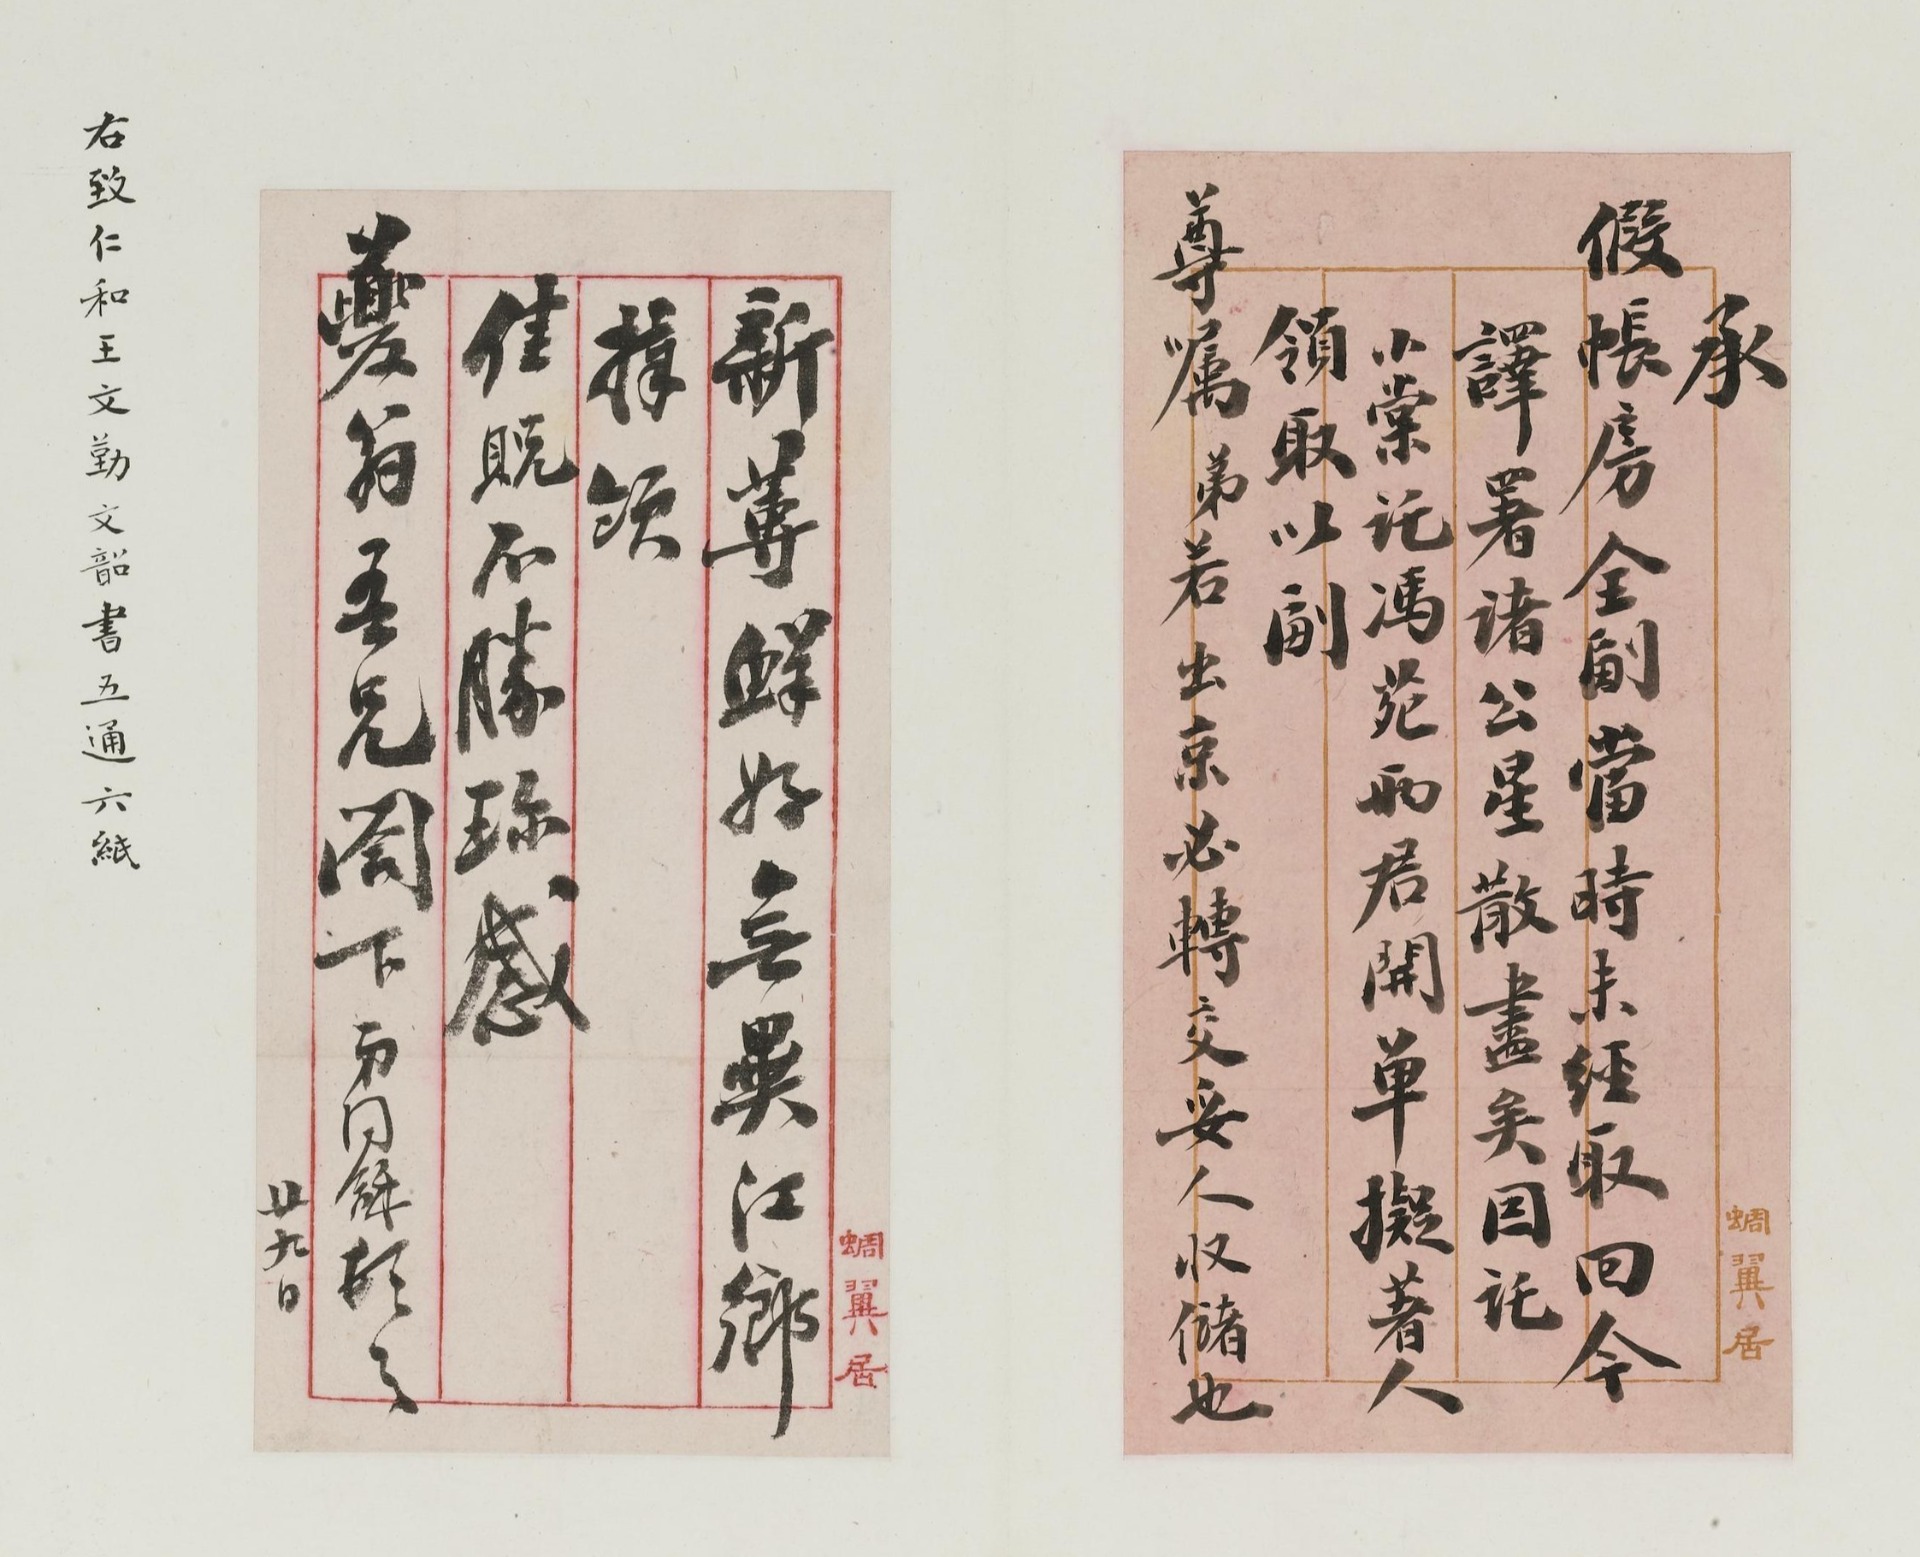 承
假帳房全副當時未經取回今
譯署諸公星散盡矣因託
小棠託馮苑兩君開單擬著人
領取以副
尊嘱弟若出京必轉交妥人收儲也
蜩翼居
新蓴鮮好無異江鄉
拜領
佳貺不勝珍感
夔翁吾兄閣下弟同龢頓首
廿九日
蜩翼居
右致仁和王文勤文韶書五通六紙